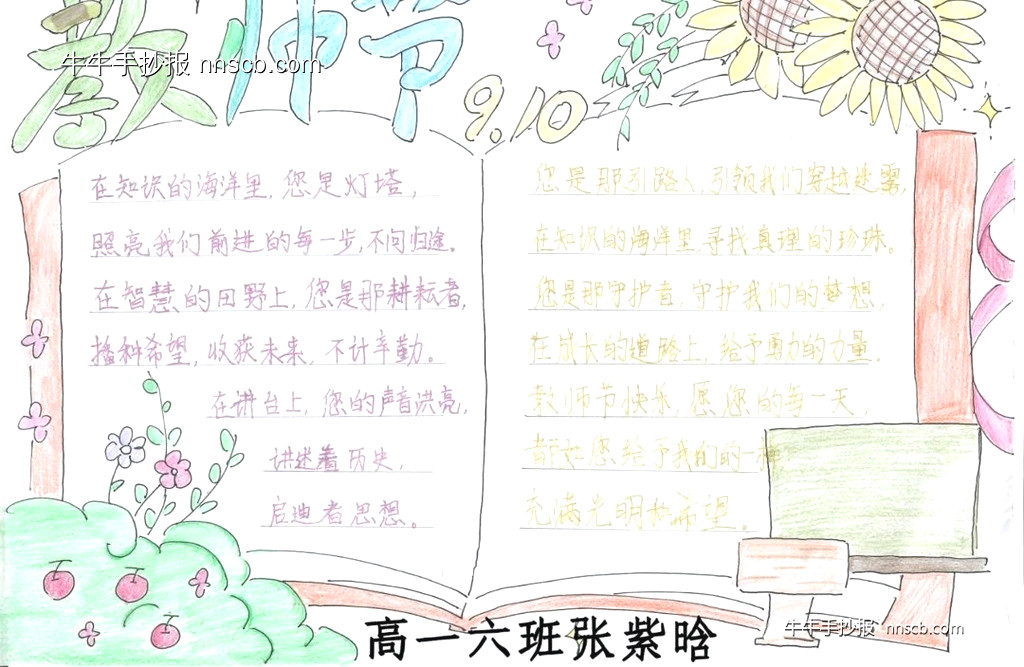 教师节
牛牛手抄报 nnscb.com
9.10
在知识的海洋里,您是灯塔,
照亮我们前进的每一步,不问归途。
在智慧的田野上,您是那耕耘者,
播种希望,收获未来,不计辛勤。
在讲台上,您的声音洪亮,
讲述着历史,
启迪者思想。
您是那引路人,引领我们穿越迷雾,
在知识的海洋里寻找真理的珍珠。
您是那守护者,守护我们的梦想,
在成长的道路上,给予勇力的力量。
教师节快乐,愿您的每一天,
都如您给予我们的一样
充满光明和希望。
高一六班张紫晗
牛牛手抄报 nnscb.com